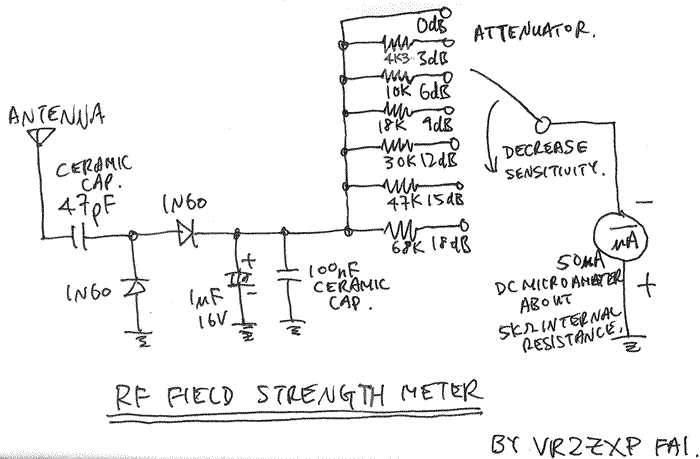 0dB
ATTENUATOR.
4K3 3dB
10K 6dB
18K 9dB
30K 12dB
47K 15dB
68K 18dB
DECREASE
SENSITIVITY.
ANTENNA
CERAMIC
CAP.
47pF
1N60
1N60
+
-
1µF
16V
100nF
CERAMIC
CAP.
-
µA
+
50µA
DC MICROAMETER
ABOUT
5KΩ INTERNAL
RESISTANCE.
RF FIELD STRENGTH METER
BY VR2ZXP FAI.